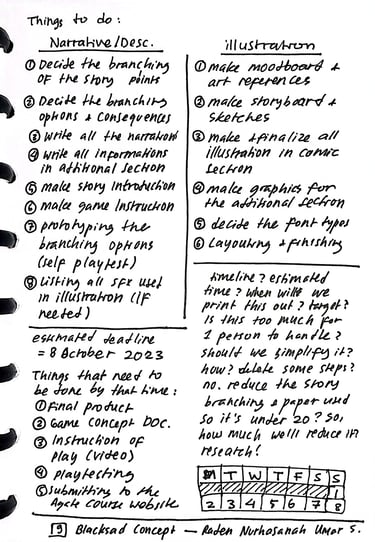 Things to do:
Narrative/Desc.
① Decide the branching
of the story points
② Decide the branching
options & consequences
③ Write all the narrations
④ write all informations
in additional section
⑤ make story introduction
⑥ make game Instruction
⑦ prototyping the
branching options
(self playtest)
⑧ Listing all sfx used
in illustration (IF
needed)
illustration
① make moodboard &
art references
② make storyboard &
sketches
③ make & finalize all
illustration in comic
section
④ make graphics for
the additional section
⑤ decide the font types
⑥ Layouting & finishing
estimated deadline
= 8 October 2023
Things that need to
be done by that time:
① Final product
② Game concept DOC.
③ Instruction of
play (video)
④ playtesting
⑤ submitting to the
Agate Course website
timeline? estimated
time? when will we
print this out? target?
Is this too much for
1 person to handle?
should we simplify it?
how? delete some steps?
no. reduce the story
branching & paper used
so it's under 20? So,
how much we'll reduce it?
research!
M T W T F S S
1
2 3 4 5 6 7 8
9 Blacksad Concept — Raden Nurhosanah Umar S.